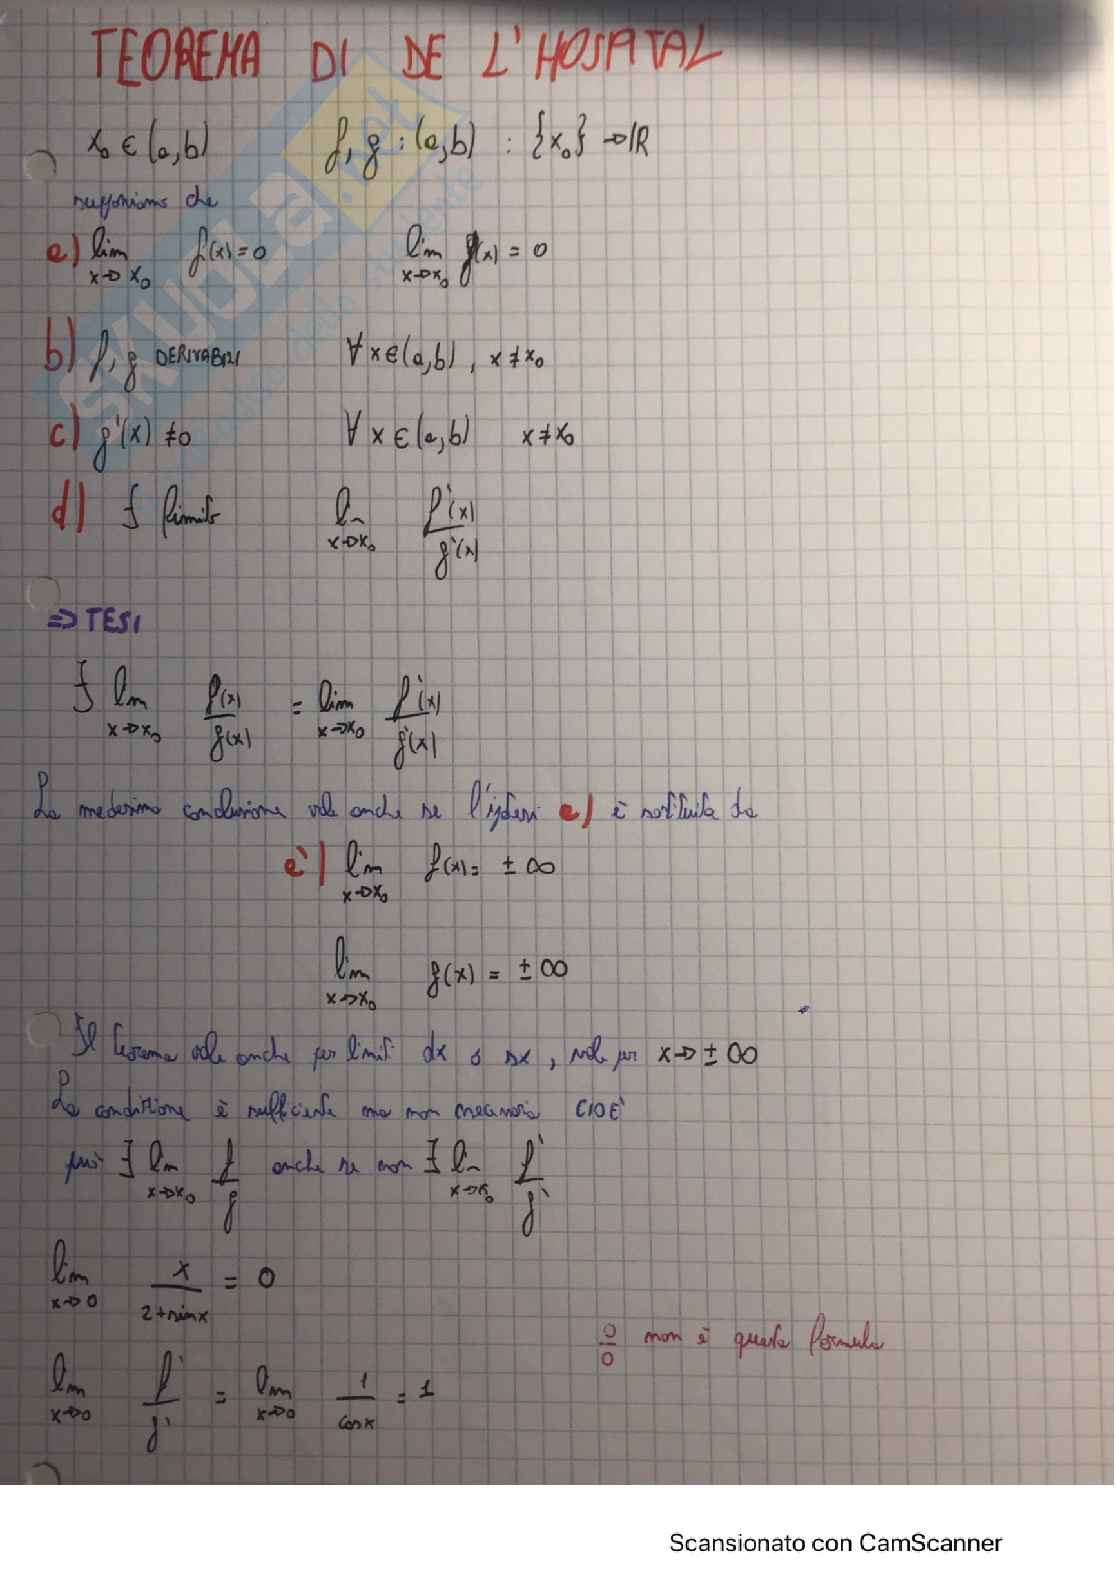 TEOREMA DI DE L'HOSPITAL
x₀ ∈ (a,b) f, g : (a,b) : {x₀} → ℝ
supponiamo che
a) lim x→x₀ f(x) = 0 lim x→x₀ g(x) = 0
b) f, g DERIVABILI ∀ x ∈ (a,b), x ≠ x₀
c) g'(x) ≠ 0 ∀ x ∈ (a,b) x ≠ x₀
d) ∃ limite lim x→x₀ f'(x)/g'(x)
⇒ TESI
∃ lim x→x₀ f(x)/g(x) = lim x→x₀ f'(x)/g'(x)
La medesima conclusione vale anche se l'ipotesi a) è sostituita da
a') lim x→x₀ f(x) = ± ∞
lim x→x₀ g(x) = ± ∞
Il teorema vale anche per limiti dx o sx, vale per x→ ± ∞
La condizione è sufficiente ma non necessaria CIOÈ
può ∃ lim x→x₀ f/g anche se non ∃ lim x→x₀ f'/g'
lim x→0 x/(2+sinx) = 0
0/0 non è questa formula
lim x→0 f'/g' = lim x→0 1/cosx = 1
SKUOLA.net
Scansionato con CamScanner